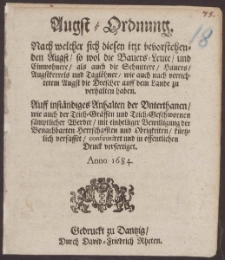 75.
18
Augst-Ordnung,
Nach welcher sich diesen itzt bevorstehen-
den Augst/ so wol die Bauers-Leute/ und
Einwohnere/ als auch die Schnittere/ Hauers/
Augstkerels und Taglöhner/ wie auch nach verrich-
tetem Augst die Drescher auff dem Lande zu
verhalten haben.
Auff inständiges Anhalten der Unterthanen/
wie auch der Teich-Gräffen und Teich-Geschwornen
sämptlicher Werder/ mit einhelliger Bewilligung der
Benachbarten Herrschafften und Obrigkeiten/ fürtz-
lich verfasset/ confirmiret und in offentlichen
Druck verfertiget.
Anno 1684.
Gedruckt zu Dantzig/
Durch David-Friedrich Rheten.